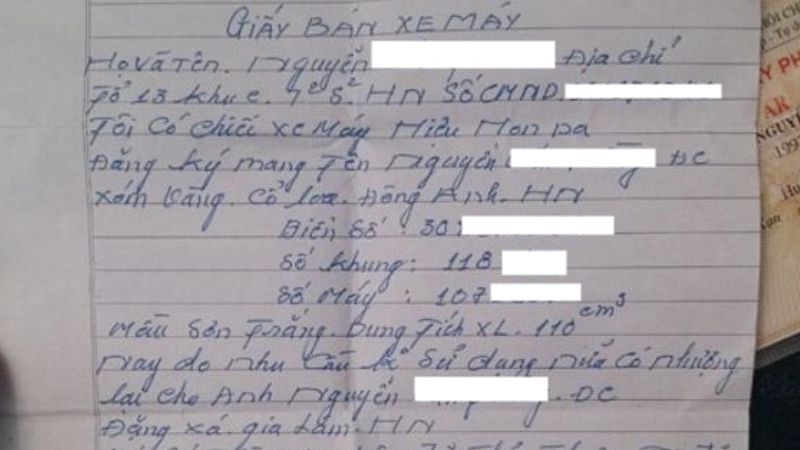 GIẤY BÁN XE MÁY
Họ Và Tên. Nguyễn Địa Chỉ
Tổ 13 Khu C. HN Số CMND.
Tôi Có Chiếc Xe Máy Hiệu Hon Da
Đăng ký mang Tên Nguyễn ĐC
Xóm Cổ Loa. Đông Anh. HN
Biển Số : 30
Số Khung: 118
Số Máy : 107
Mầu Sơn Trắng. Dung Tích XL. 110 cm³
Nay do nhu Cầu Sử dụng nữa Có nhượng
lại Cho Anh Nguyễn . ĐC
Đặng Xá. gia Lâm. HN
Y PH
NGUY
199